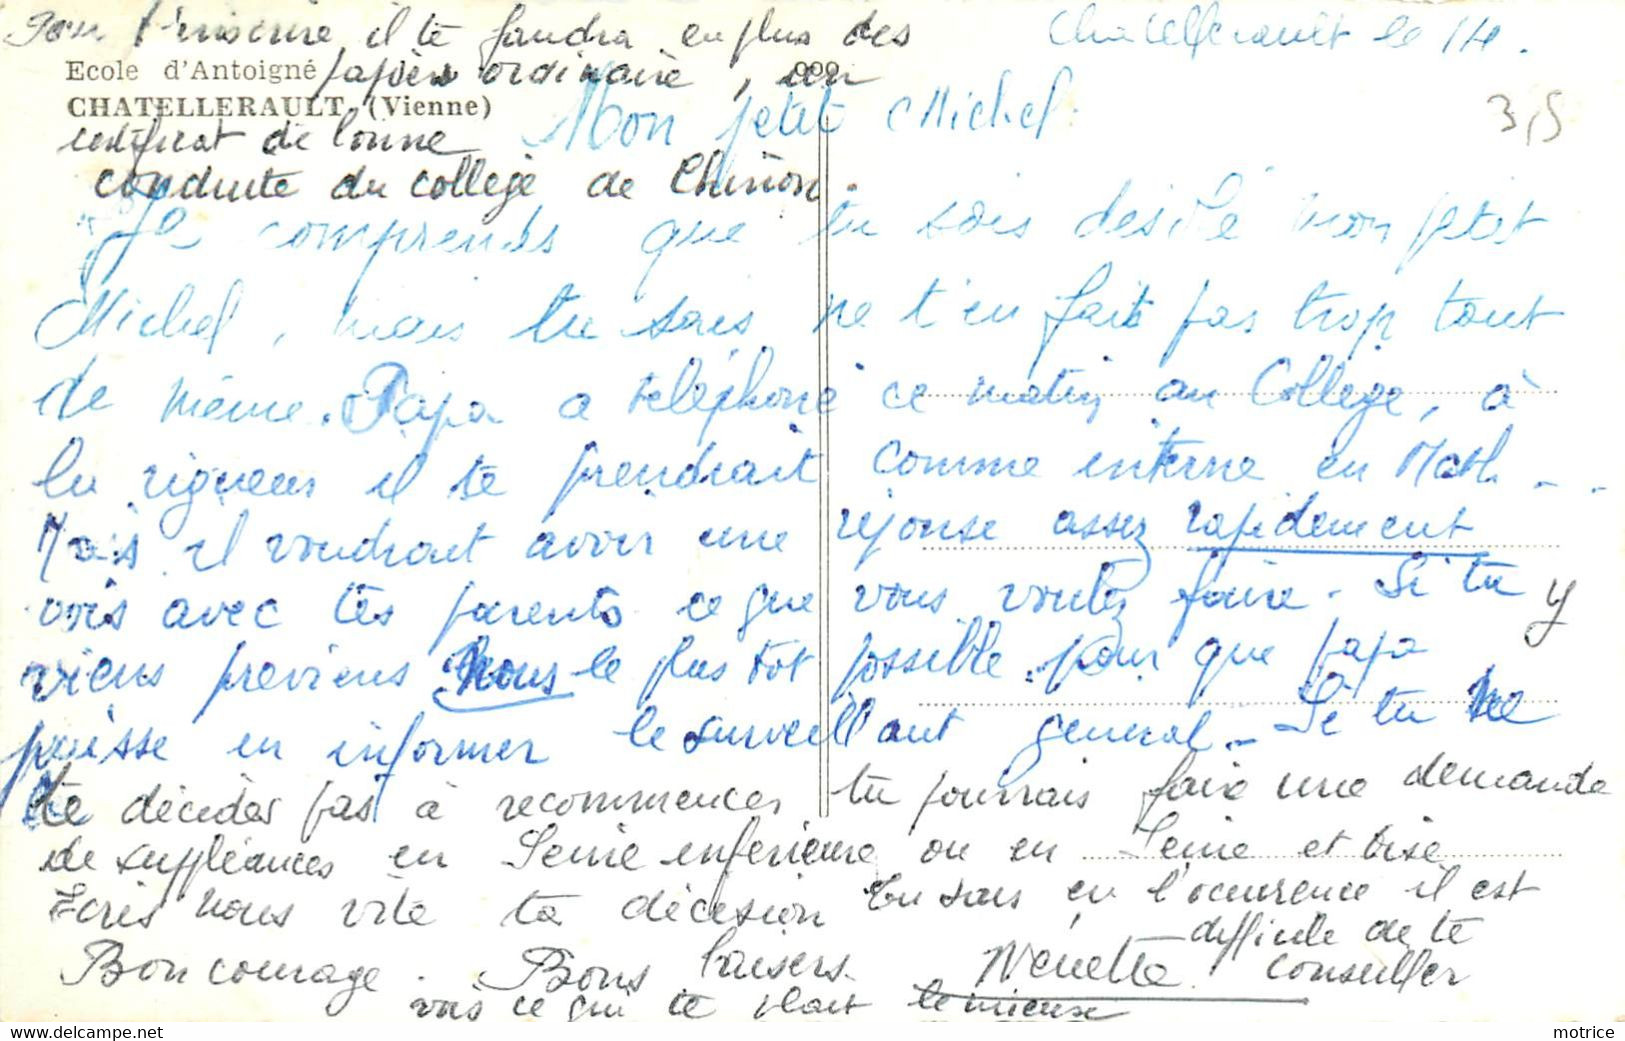 Pour t'inscrire, il te faudra en plus des
Chatellerault le 14.
Ecole d'Antoigné
papiers ordinaire, un
999
CHATELLERAULT (Vienne)
certificat de bonne
conduite du collège de Chinon
Mon petit Michel.
3,5
Je comprends que tu sois désolé mon petit
Michel, mais tu sais ne t'en fait pas trop tout
de même. Papa a telephoné ce matin au Collège, à
la rigueur il te prendrait comme interne en Math...
Mais il voudrait avoir une réponse assez rapidement
vois avec tes parents ce que vous voulez faire. Si tu y
viens previens nous le plus tot possible pour que papa
puisse en informer le surveillant general. Si tu ne
te décides pas à recommencer tu pourrais faire une demande
de suppléances en Seine inferieure ou en Seine et Oise
Ecris nous vite ta décision Tu sais en l'occurence il est
difficile de te
conseiller
Bon courage. Bons baisers. Nénette
vois ce qui te plait le mieux
motrice